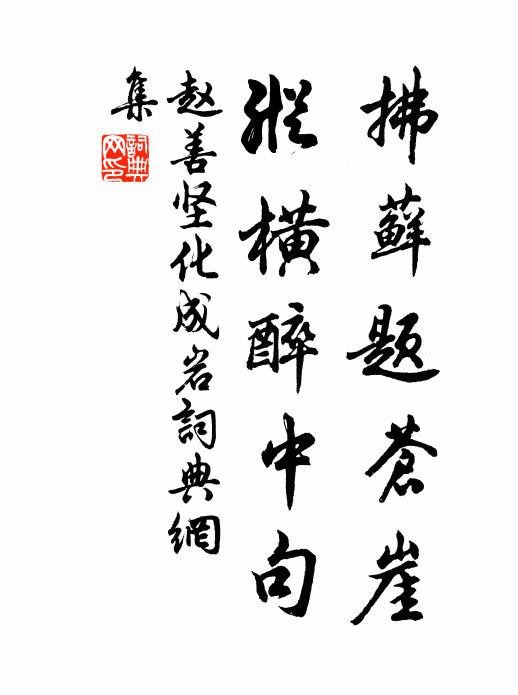 拂蘚題蒼崖
縱橫醉中句
赵善坚化成岩詞典網
集
詞典网印